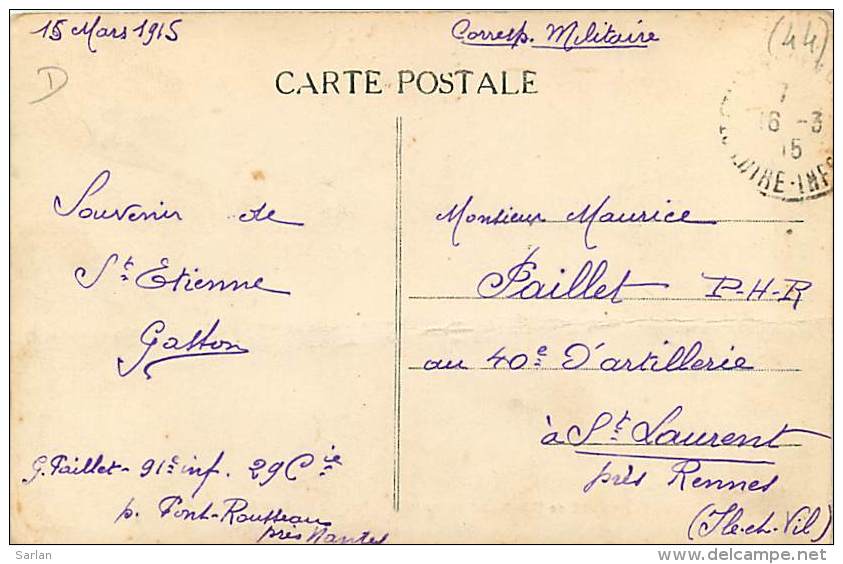 15 Mars 1915
Corresp. Militaire
(44)
D
CARTE POSTALE
7
16 -3
15
LOIRE-INFRE
Souvenir de
St Etienne
Gaston
G. Paillet - 91e inf. 29 Cie
p. Pont-Rousseau
près Nantes
Monsieur Maurice
Paillet P-H-R
au 40e d'artillerie
à St Laurent
près Rennes
(Ile-et-Vil)
Sarlan
delcampe.net